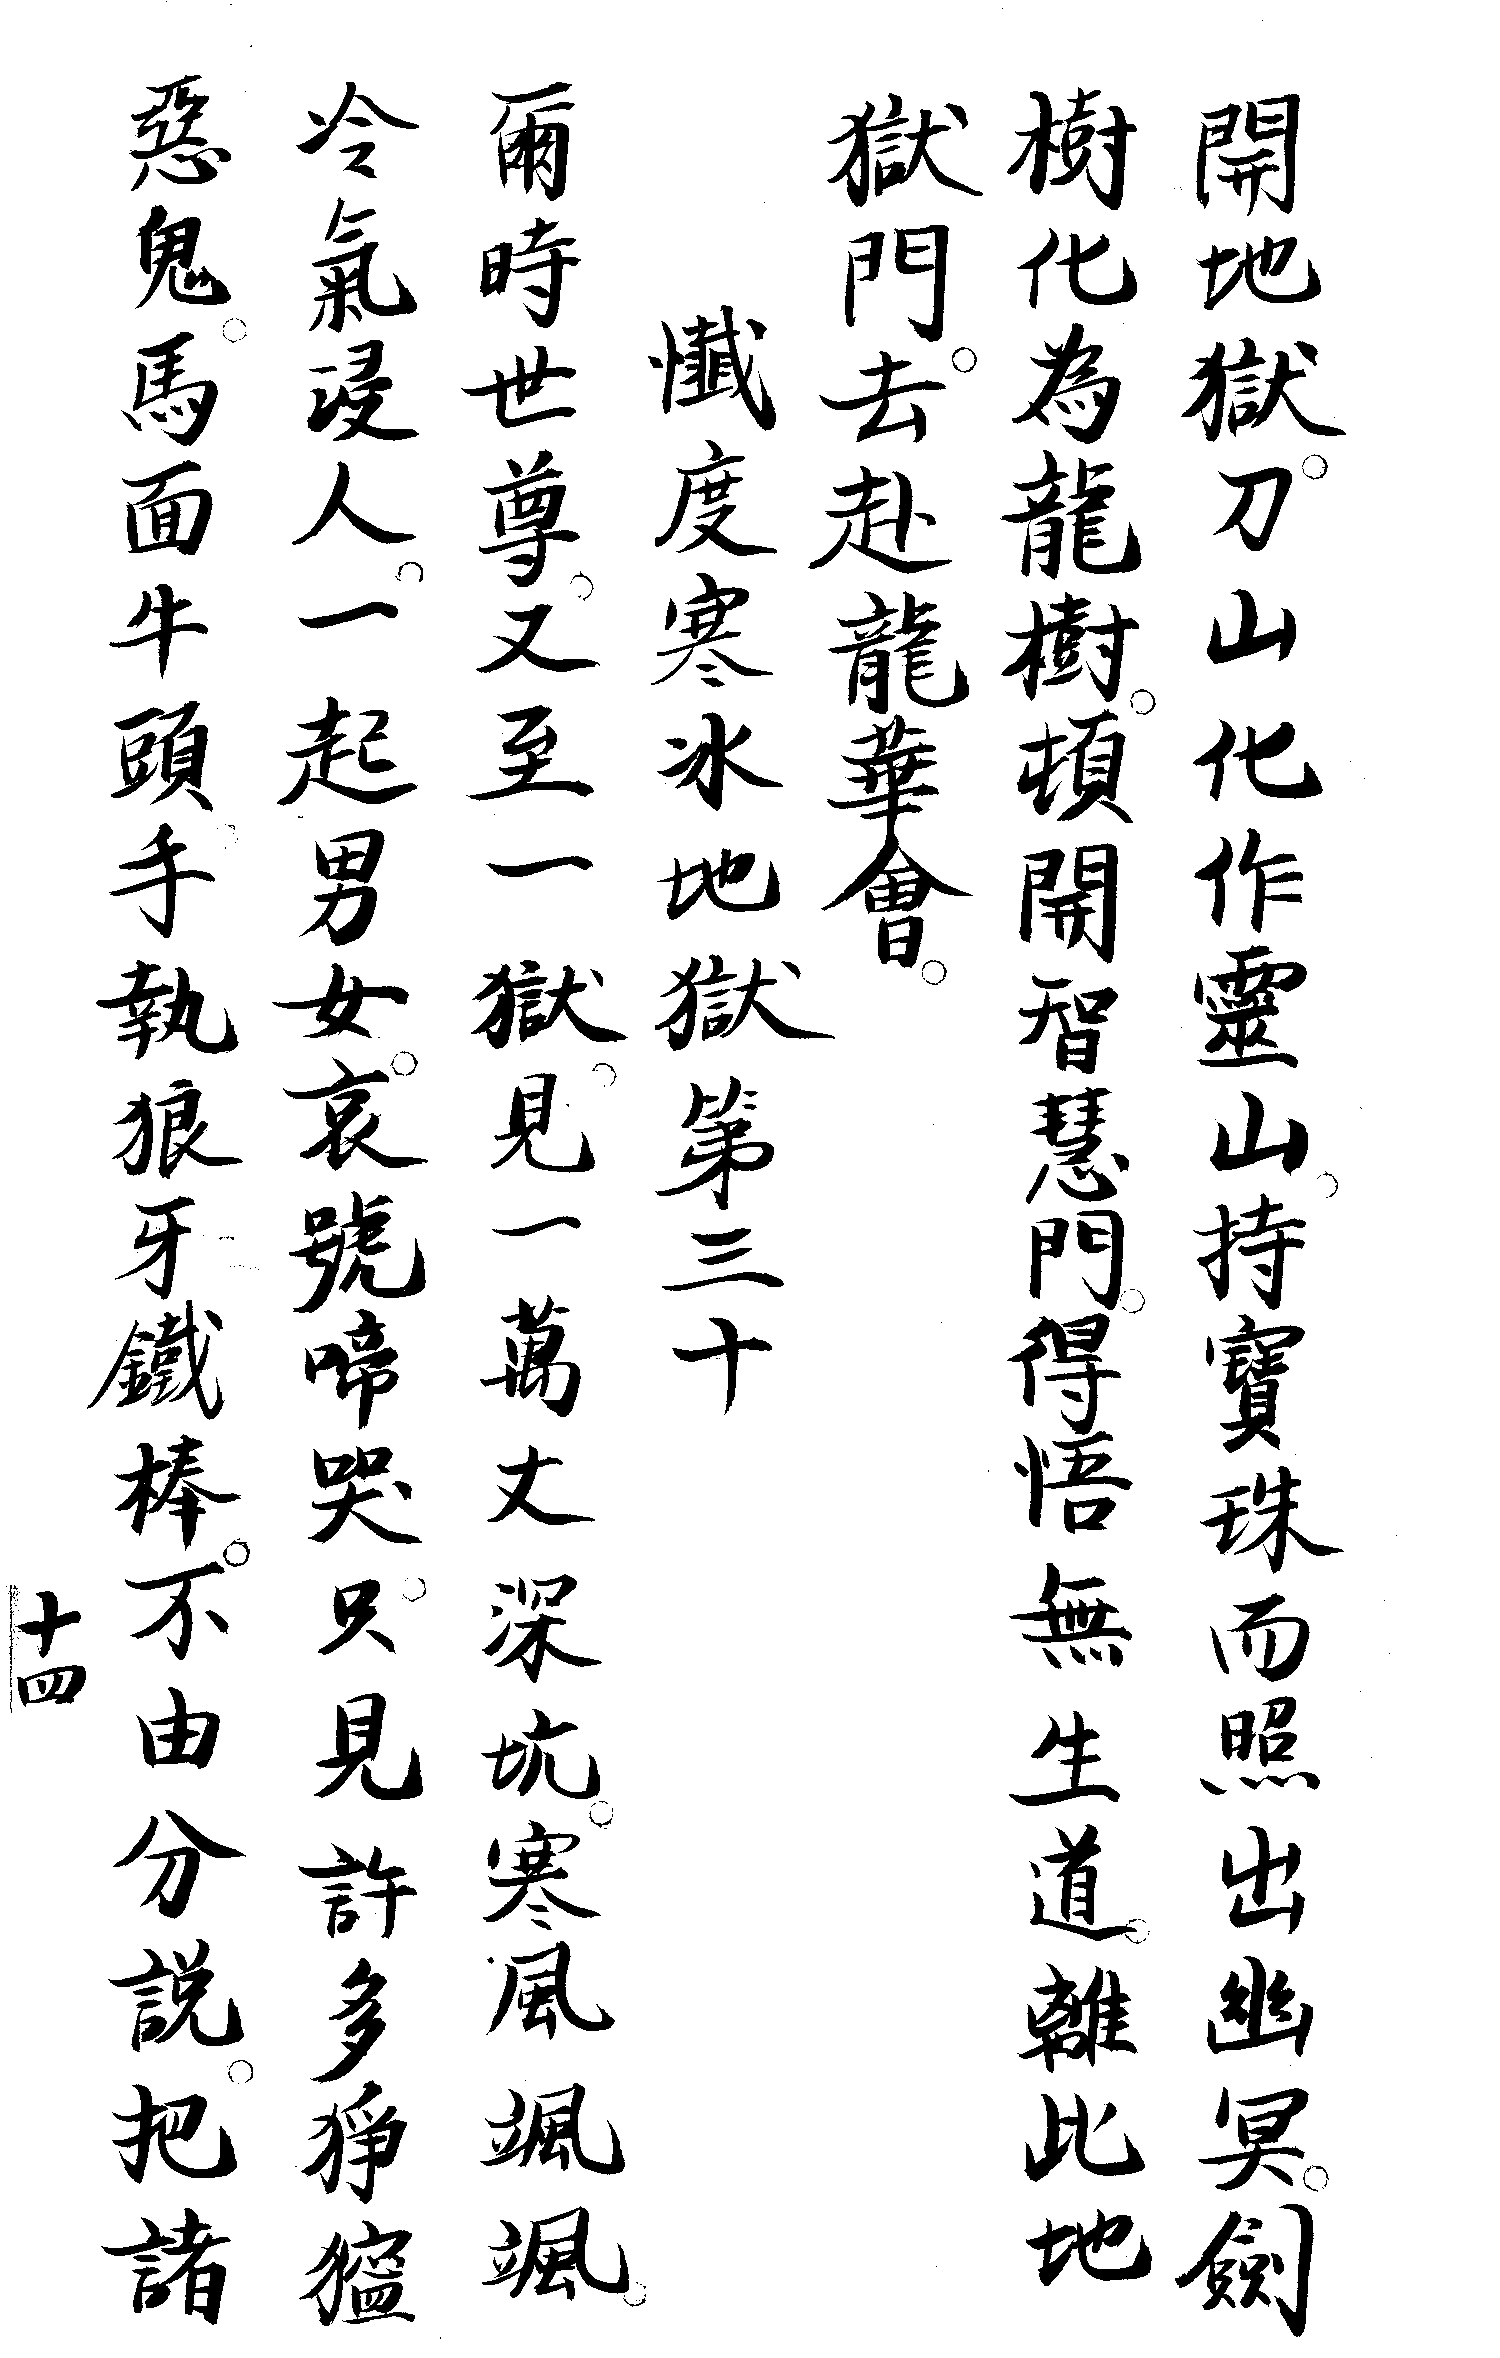 開地獄。刀山化作靈山。持寶珠而照出幽冥。劍
樹化為龍樹。頓開智慧門。得悟無生道。離此地
獄門。去赴龍華會。
懺度寒冰地獄第三十
爾時世尊。又至一獄。見一萬丈深坑。寒風颯颯。
冷氣浸人。一起男女。哀號啼哭。只見許多猙獰
惡鬼。馬面牛頭。手執狼牙鐵棒。不由分説。把諸
十四